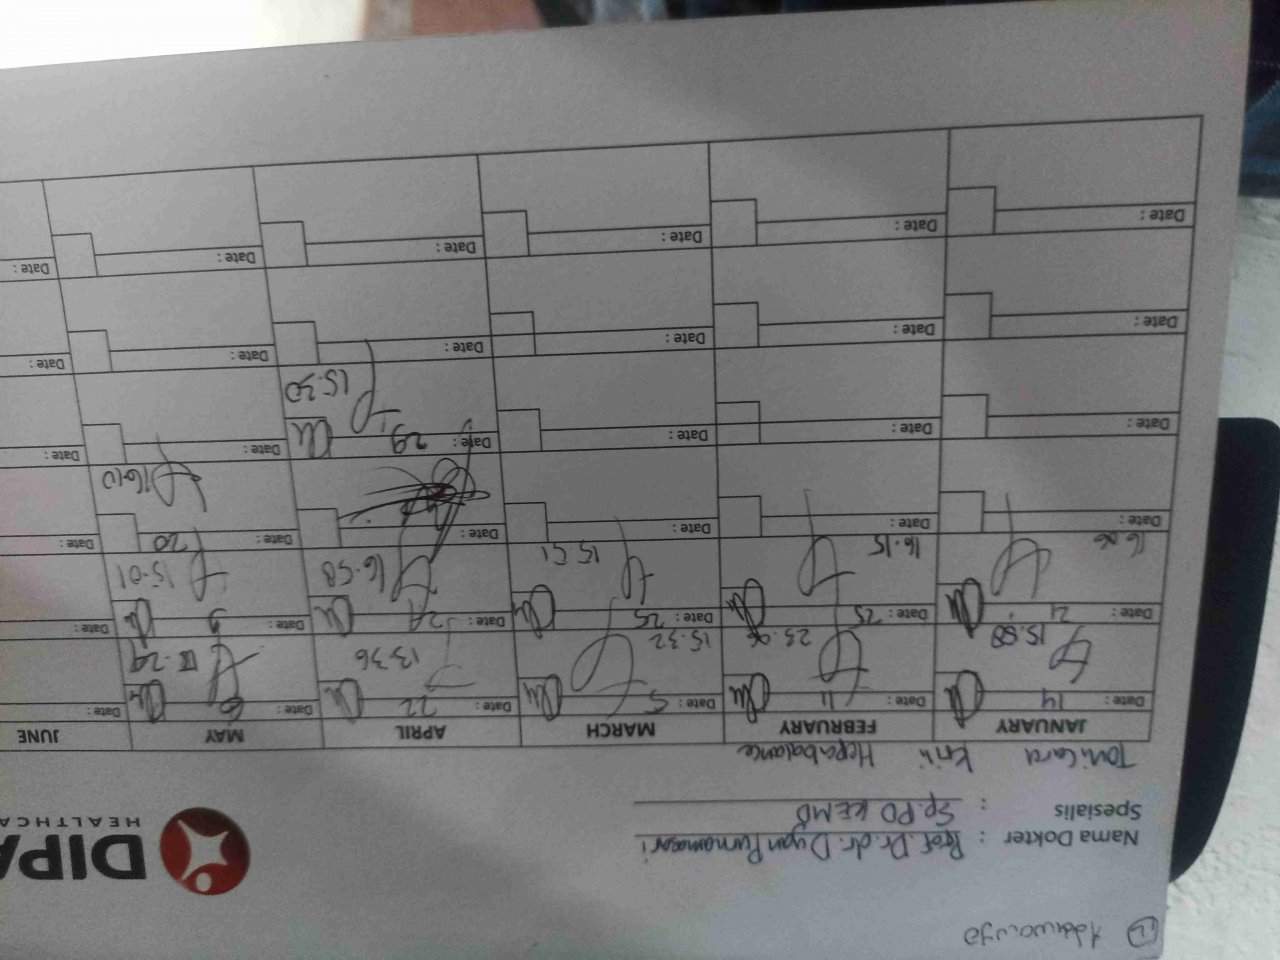 DIPA
HEALTHCA
Nama Dokter : Prof. Dr. dr. Dyan Purnamasari
Spesialis : Sp.PD KEMD
Hepabalance
JANUARY FEBRUARY MARCH APRIL MAY JUNE
Date : 14 Date : 11 Date : 5 Date : 22 Date : 6 Date :
15.58 23.06 15.32 13.36
Date : 21 Date : 25 Date : 25 Date : Date : Date :
16.06 16.15 15.51 16.58 15.01
Date : Date : Date : Date : Date : 20 Date :
1610
Date : Date : Date : Date : 29 Date : Date :
15.30
Date : Date : Date : Date : Date : Date :
Date : Date : Date : Date : Date : Date :